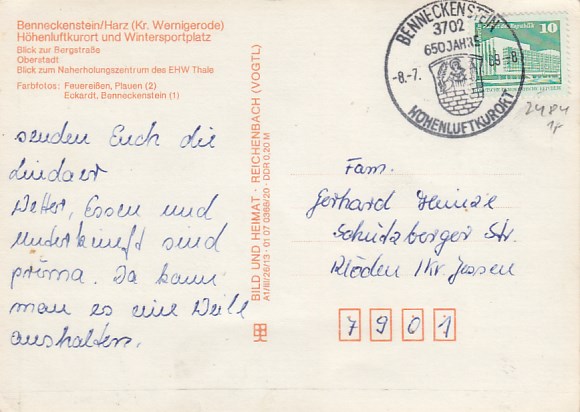 Benneckenstein/Harz (Kr. Wernigerode)
Höhenluftkurort und Wintersportplatz
Blick zur Bergstraße
Oberstadt
Blick zum Naherholungszentrum des EHW Thale
Farbfotos: Feuereißen, Plauen (2)
Eckardt, Benneckenstein (1)
senden Euch die
Lindaer
Wetter, Essen und
Unterkunft sind
prima. Da kann
man es eine Weile
aushalten.
BILD UND HEIMAT · REICHENBACH (VOGTL)
A1/III/26/13 · 01 07 0386/20 · DDR 0,20 M
BENNECKENSTEIN
3702
650 JAHRE
-8.-7. 89.-8
HÖHENLUFTKURORT
10
2484
Fam.
Gerhard Heinze
Schützberger Str.
Klöden Kr. Jessen
7901